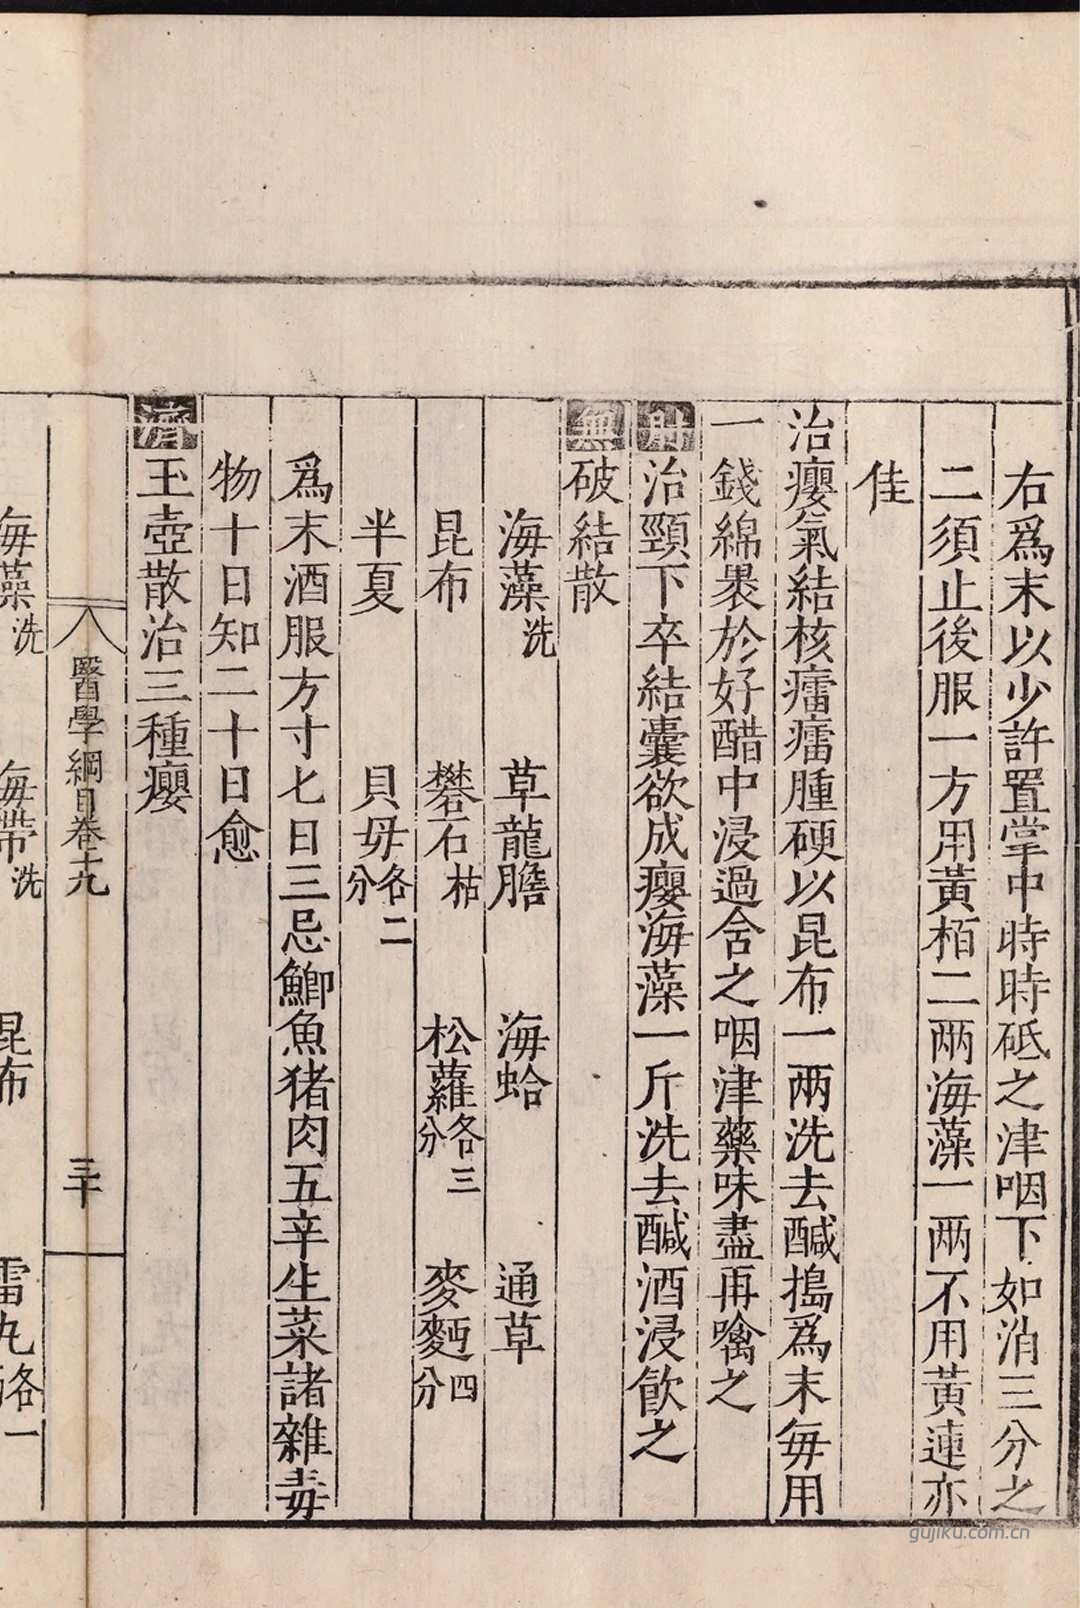 右爲末以少許置掌中時時砥之津咽下如消三分之
二須止後服一方用黃栢二兩海藻一兩不用黃連亦
佳
治癭氣結核癅癅腫硬以昆布一兩洗去鹹搗爲末每用
一錢綿褁於好醋中浸過含之咽津藥味盡再噙之
肘治頸下卒結囊欲成癭海藻一斤洗去鹹酒浸飮之
無破結散
海藻洗 草龍膽 海蛤 通草
昆布 礬石枯 松蘿各三分 麥麪四分
半夏 貝毋各二分
爲末酒服方寸七日三忌鯽魚猪肉五辛生菜諸雜毒
物十日知二十日愈
濟玉壺散治三種癭
醫學綱目卷十九 三十
海藻洗 海帶洗 昆布 雷丸各一
gujiku.com.cn